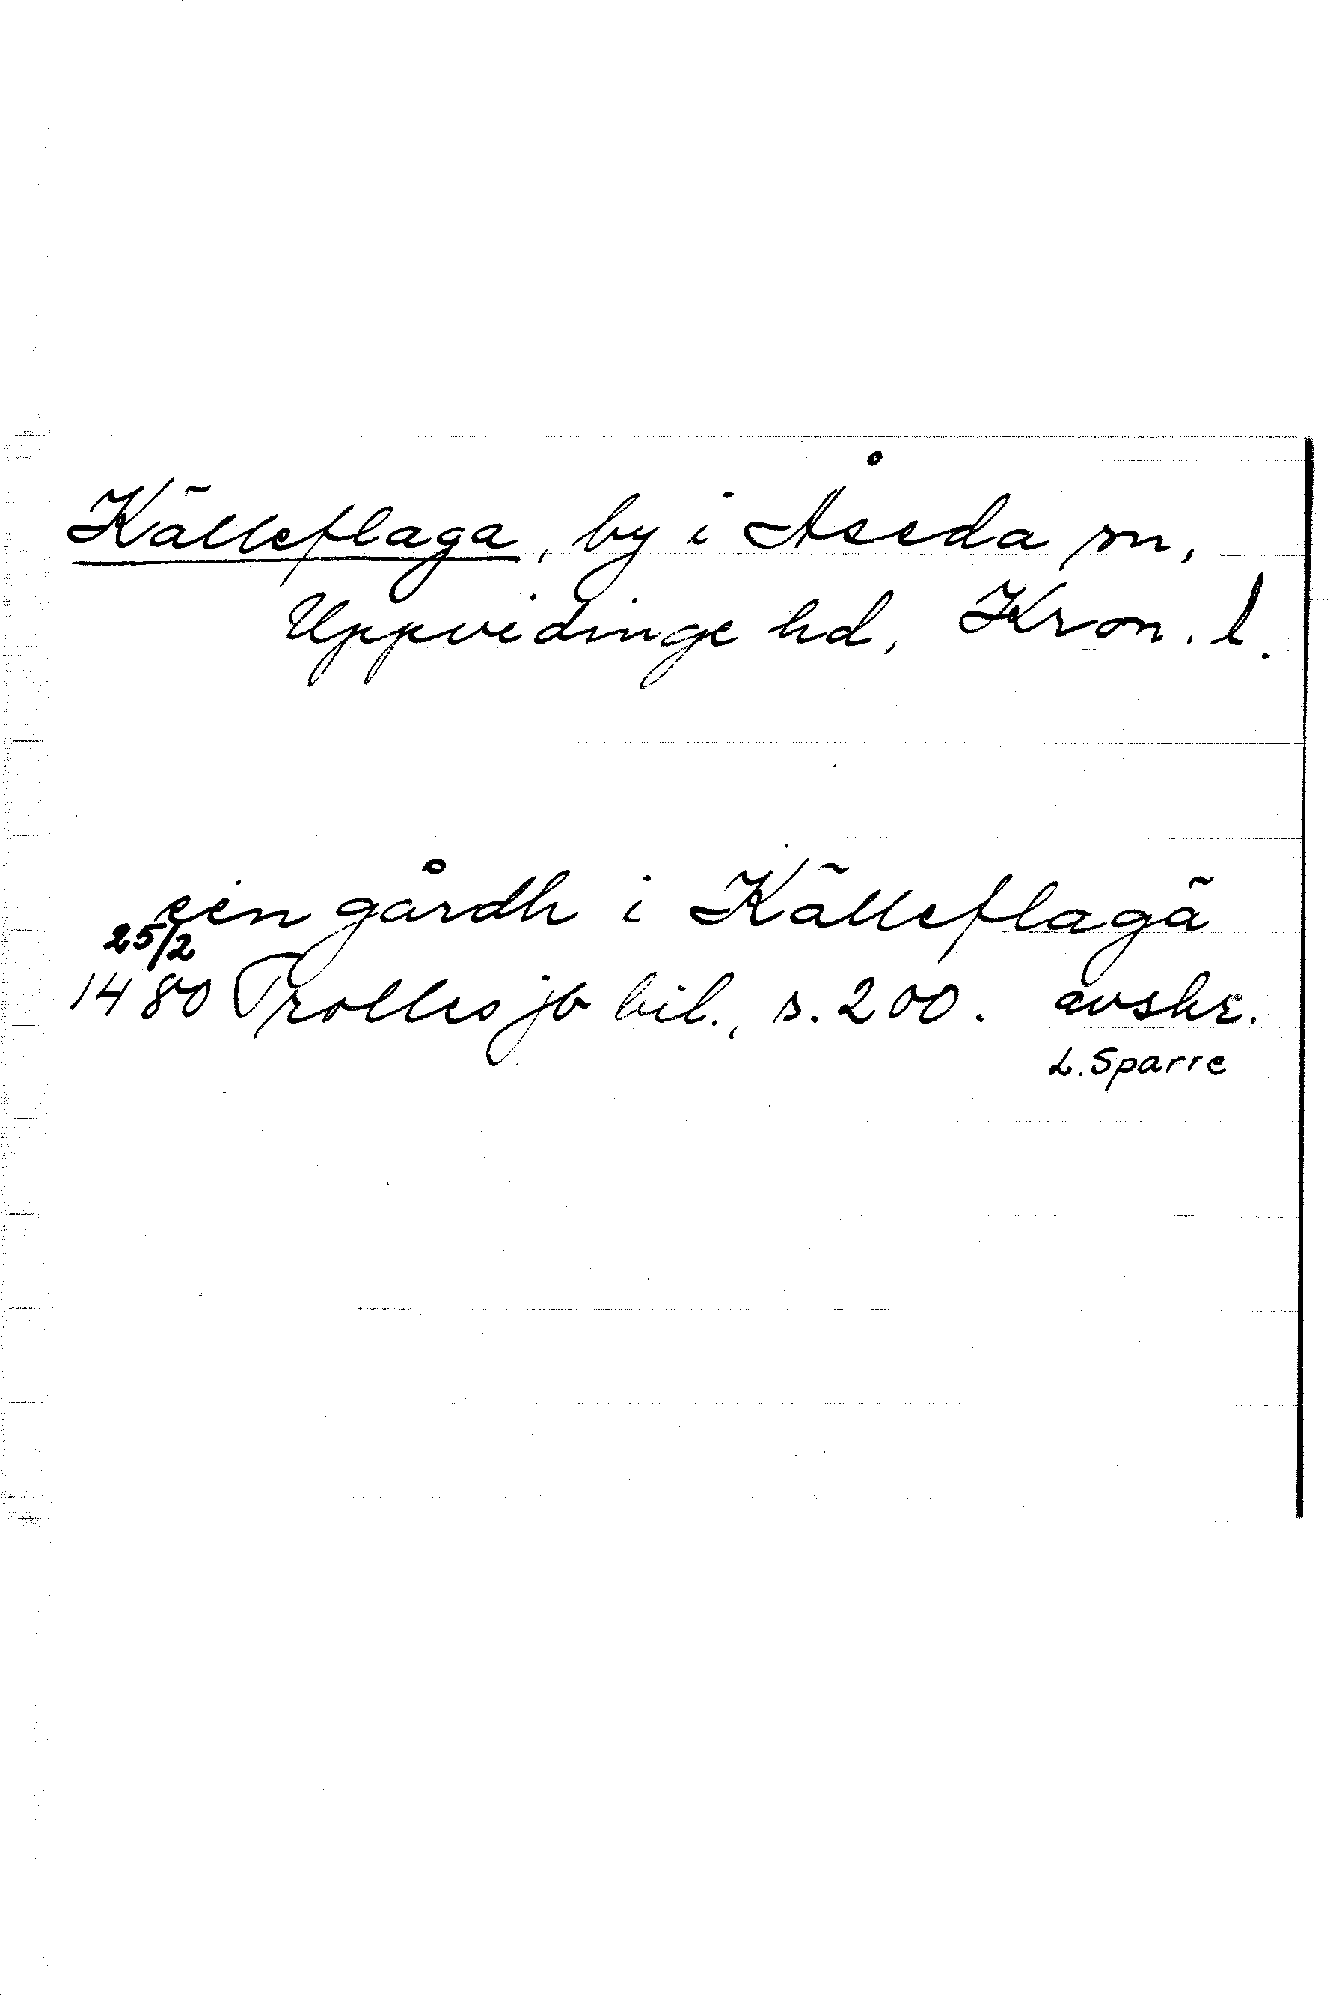 Källeflaga, by i Åseda sn,
Uppvidinge hd, Kron. l.
een gårdh i Källeflagä
25/2
1480 Trolles jb bil., s. 200. avskr.
L. Sparre